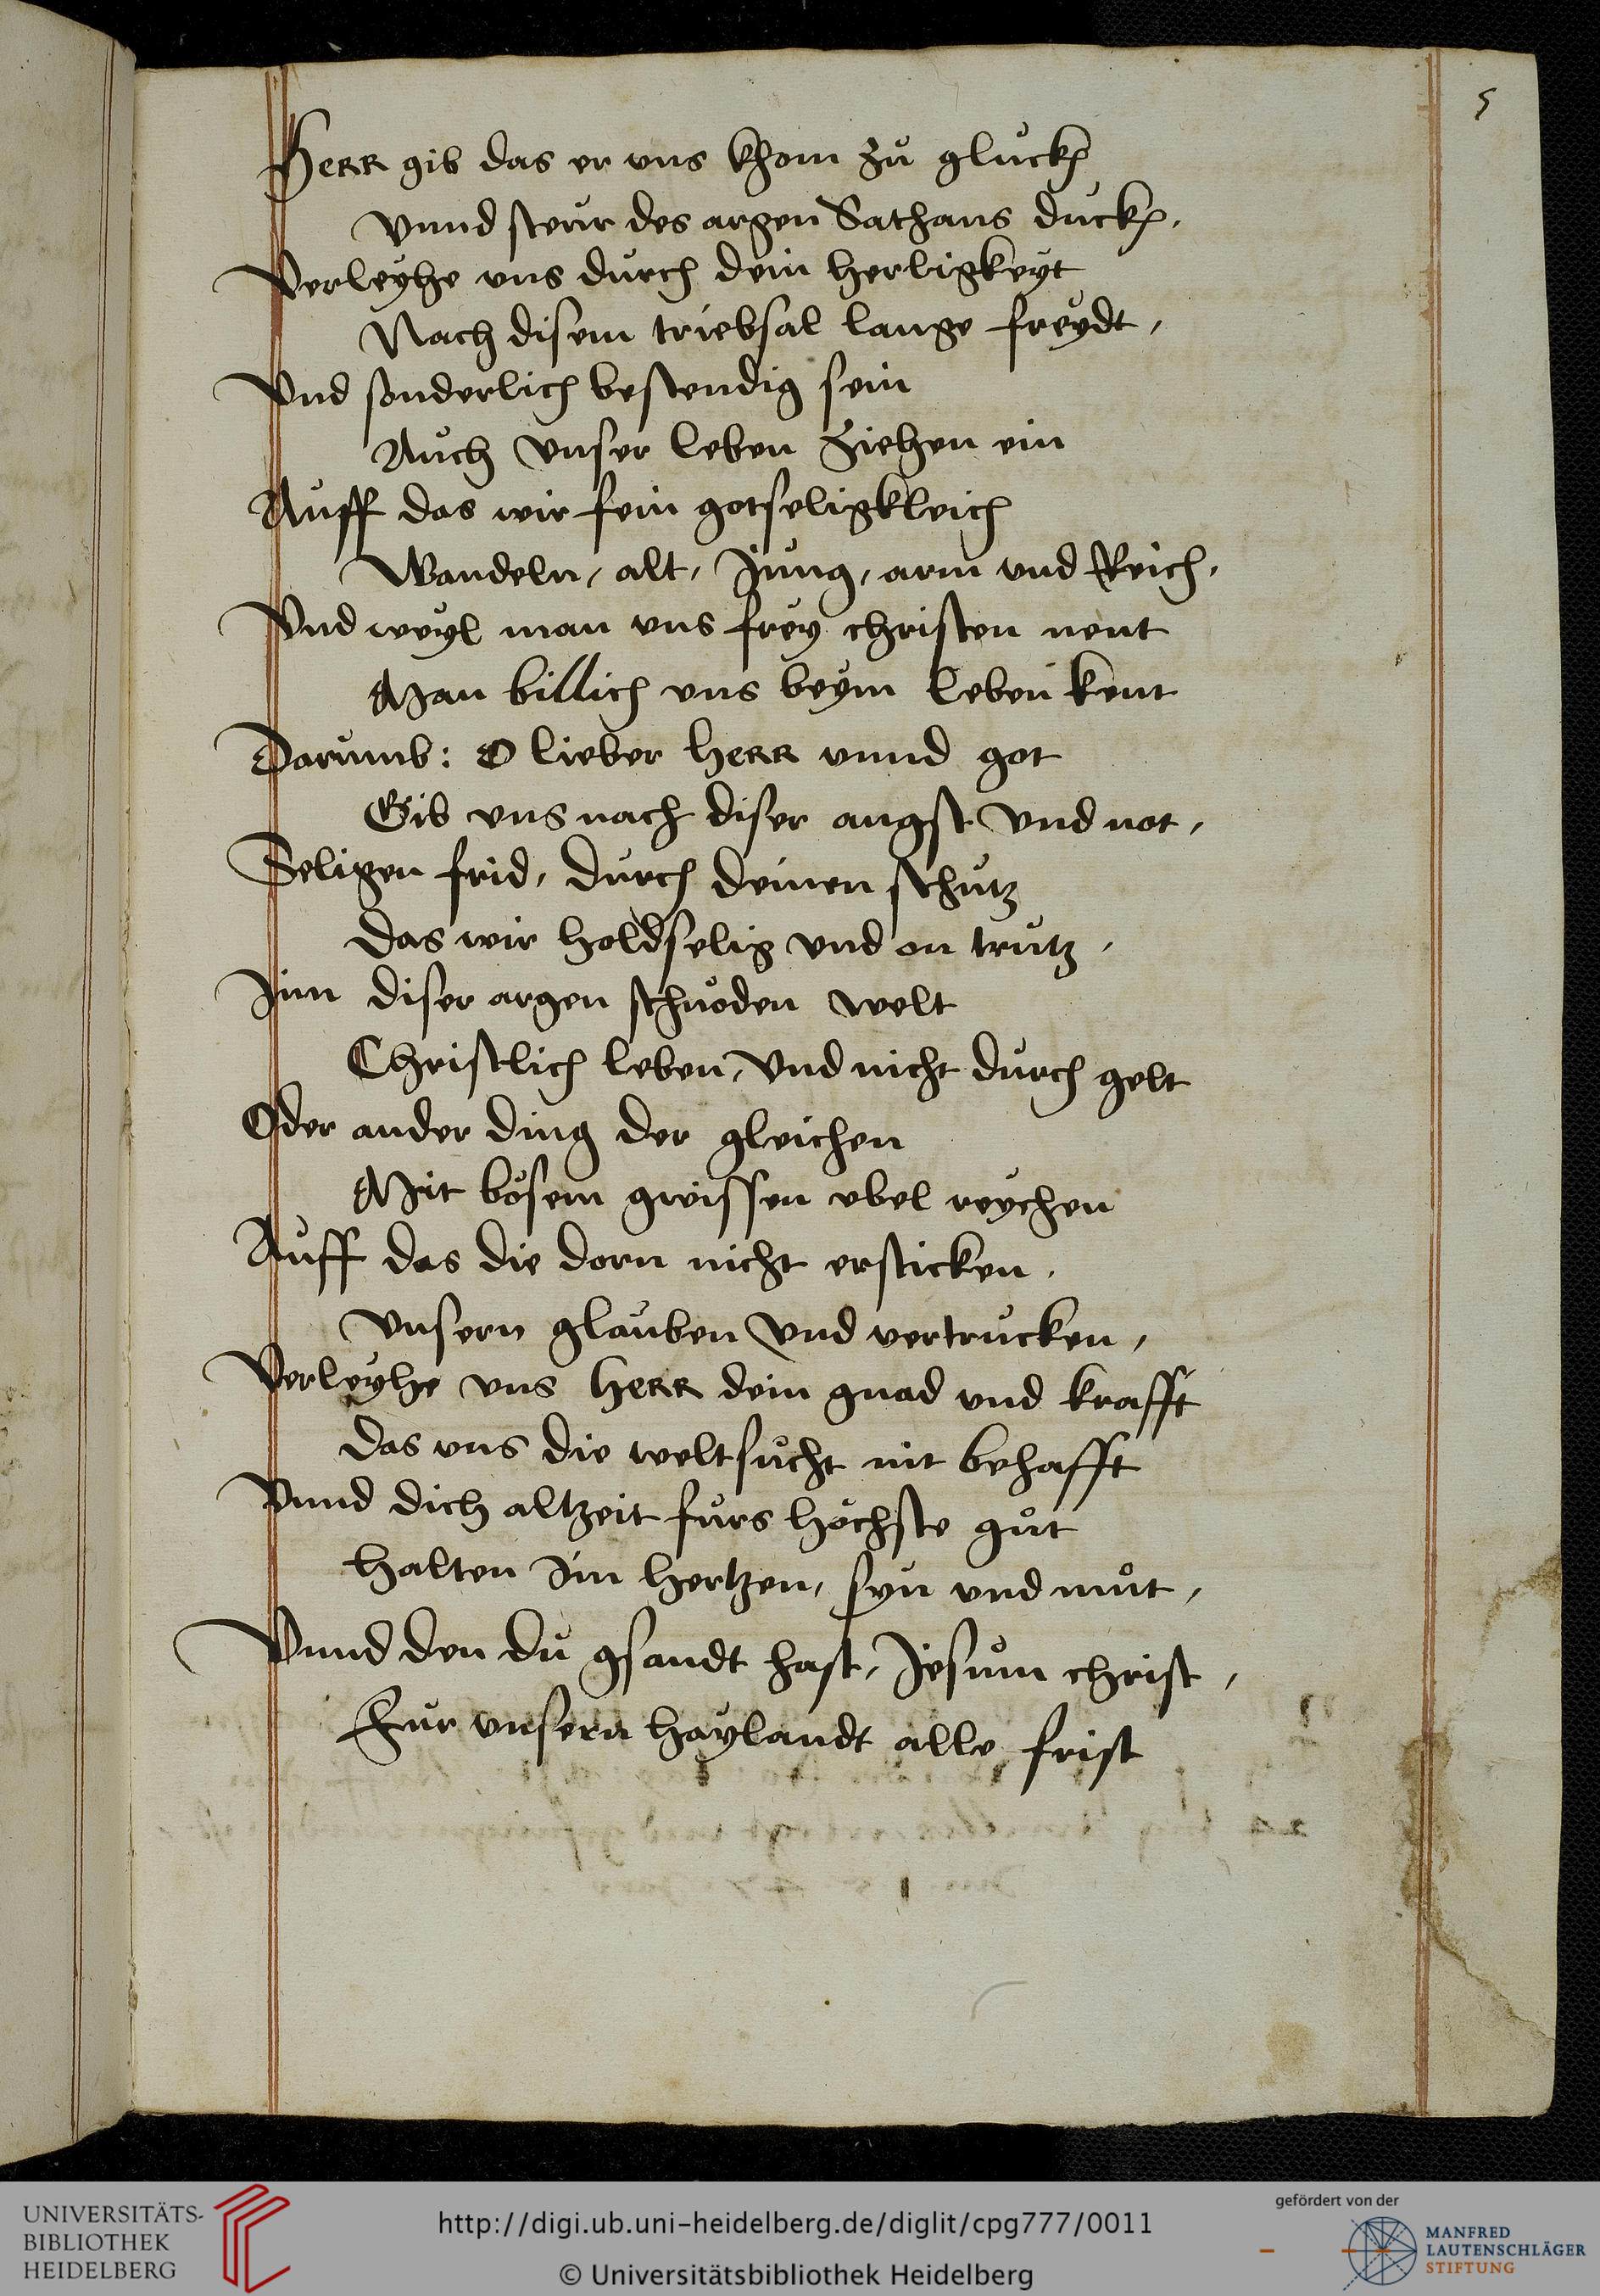 5
HERR gib das er vns khom zu gluck
Vnnd steur des argen Sathans duck,
Verleyhe vns durch dein herligkeyt
Nach disem triebsal lange freydt,
Vnd sonderlich bestendig sein
Auch Vnser leben Ziehen ein
Auff das wir fein gotseligkleich
Wandeln, alt, Jung, arm vnd Reich,
Vnd weyl man vns frey christen nent
Man billich vns beym leben kent
Darumb: O lieber HERR vnnd got
Gib vns nach diser angst Vnd not,
Seligen frid, durch deinen schutz
Das wir holdselig vnd on trutz,
Jnn diser argen schnöden welt
Christlich leben, Vnd nicht durch gelt
Oder ander ding der gleichen
Mit bösem gwissen vbel reychen
Auff das die dorn nicht ersticken,
Vnsern glauben Vnd vertrucken,
Verleyhe vns HERR dein gnad vnd krafft
Das vns die weltsucht nit behafft
Vnnd dich altzeit fürs höchste gut
Halten Jm hertzen, syn vnd mut,
Vnnd den du gsandt hast, Jesum christ,
Fur vnsern haylandt alle frist
UNIVERSITÄTS-
BIBLIOTHEK
HEIDELBERG
http://digi.ub.uni-heidelberg.de/diglit/cpg777/0011
© Universitätsbibliothek Heidelberg
gefördert von der
MANFRED
LAUTENSCHLÄGER
STIFTUNG